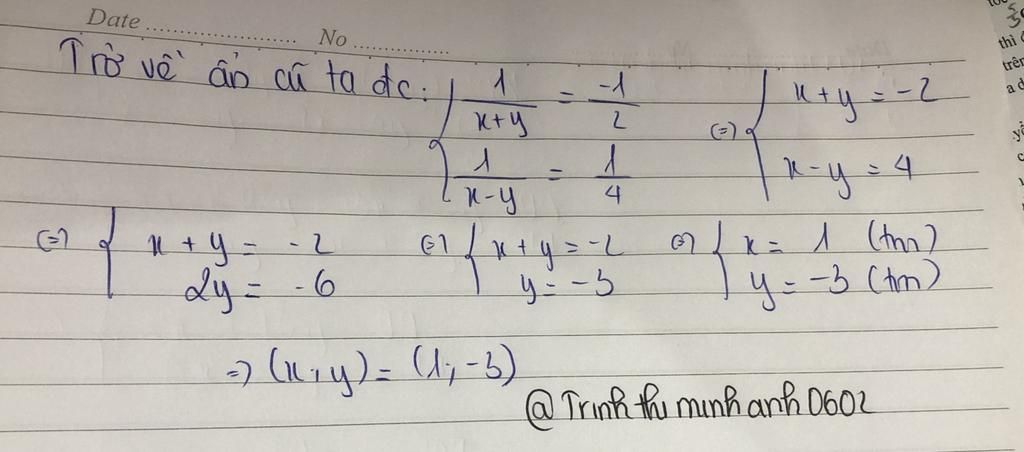 Date ........................ No ................
Trở về ẩn cũ ta đc: { 1/(x+y) = -1/2 (=) { x+y = -2
1/(x-y) = 1/4 x-y = 4
(=) { x + y = -2 (=) { x + y = -2 (=) { x = 1 (tm)
2y = -6 y = -3 y = -3 (tm)
=) (x, y) = (1; -3)
@Trinh thu minh anh 0602
thì
trên
a d